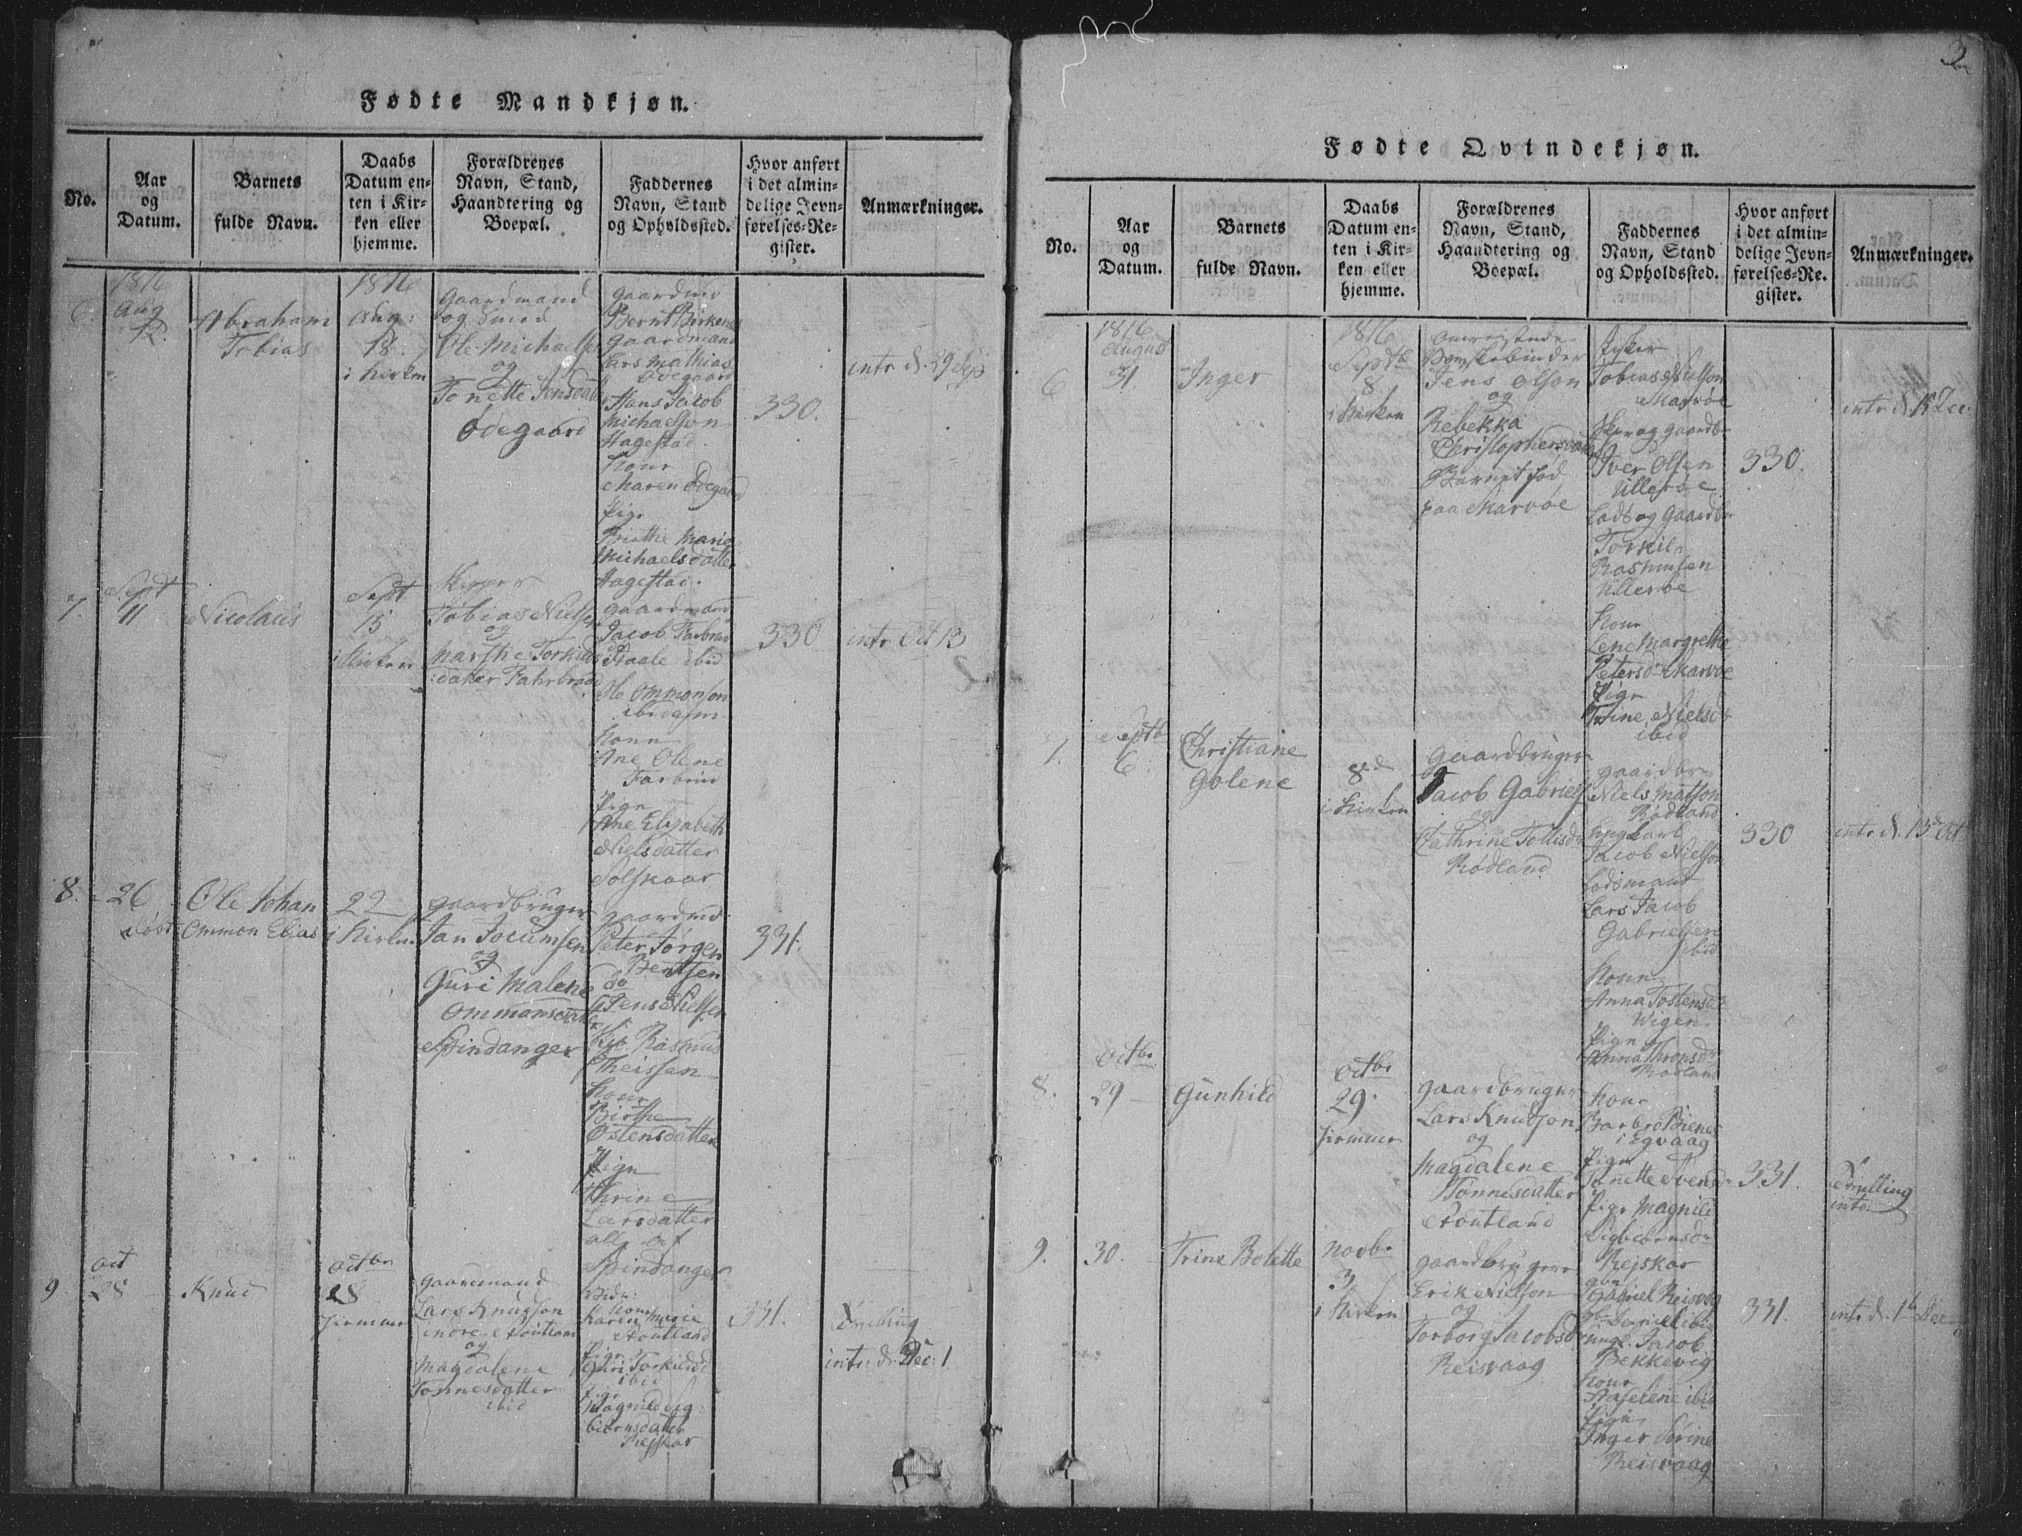 3
Fødte Mandkjøn.
No.
Aar
og
Datum.
Barnets
fulde Navn.
Daabs
Datum en-
ten i Kir-
ken eller
hjemme.
Forældrenes
Navn, Stand,
Haandtering og
Boepæl.
Faddernes
Navn, Stand
og Opholdssted.
Hvor anført
i det almin-
delige Jevn-
førelses-Re-
gister.
Anmærkninger.
1816
Aug
12.
Abraham
Tobias
1816
Aug:
18.
i Kirken
Gaardmand
og Smed
Ole Michaelsen
og
Tonette Jensdat
Ødegaard
Gaardmd
Bernt Birkenes
Gaardmand
Lars Mathias
Ødegaard
Hans Jacob
Michaelson
Hagestad
Kone
Maren Ødegaard
Pige
Birthe Marie
Michaelsdatter
Hagestad.
330.
intr d. 29 Sep
7.
Sept
11
Nicolaus
Sept
15
i Kirken
Skipper
Tobias Nielsen
og
Marthe Torkilds
datter Fahrbrod
Gaardmand
Jacob Farbrod
Staale ibid
Ole Ommonson
ibidem
Kone
Ane Olene
Farbrod
Pige
Ane Elisabeth
Nielsdatter
Solskaar
330
intr Oct 13
8.
26
døbt
Ole Johan
Ommon Elias
22
i Kirken
Gaardbruger
Jan Jocumsen
og
Guri Malene
Ommansdatter
Spindanger
Gaardmd
Peter Jørgen
Bentsen
do
Jens Nielsen
Rasmus
Theissen
Kone
Birthe
Ostensdatter
Pige
Thrine
Larsdatter
alle af
Spindanger
331.
9
oct
28
Knud
octbr
28
hiemme
Gaardmand
Lars Knudson
indre
og
Magdalene
Tonnesdatter
ibid
Kone
Karen Marie
Pige
Guri Torkildsd
ibid
Pige
Magnild Sig
biørnsdatter
Rejskar
331.
Tvilling
intr: d. Dec: 1
Fødte Qvindekjøn.
No.
Aar
og
Datum.
Barnets
fulde Navn.
Daabs
Datum en-
ten i Kir-
ken eller
hjemme.
Forældrenes
Navn, Stand,
Haandtering og
Boepæl.
Faddernes
Navn, Stand
og Opholdssted.
Hvor anført
i det almin-
delige Jevn-
førelses-Re-
gister.
Anmærkninger.
6
1816
August
31
Inger
1816
Septbr
8
i Kirken
omreisende
Jens Olson
og
Rebekka
Christophersdatter
Barnet fød
paa Skarvøe
Fisker
Tobias Nielson
Skarvøe
Gaardbr
Iver Olsen
Ullerøe
Lods og Gaardbr
Torkil
Rasmusen
Ullerøe
Kone
Lene Margrethe
Petersd Skarvøe
Pige
Trine Nielsd
ibid
330.
intr d. 15 Dec.
7.
Septb
6
Christiane
Golene
8de
i Kirken
Gaardbruger
Jacob Gabriels
og
Cathrine Tollisd
Rødland
Gaardbr
Niels Matson
Rødland
Ungkarl
Jacob Nielson
Lodsmand
Lars Jacob
Gabrielsen
ibid
Kone
Anna Tostensd
Wigen
Pige
Anna Thronsd
Rødland
330
intr d. 13 Oct
8.
octbr
29
Gunhild
octbr
29.
hiemme
Gaardbruger
Lars Knudson
og
Magdalene
Tonnesdatter
Kone
Barbro Biene
i Egvaag
Pige
Tonette Svensd
Pige Magnild
Sigbiørnsd
Rejskar
331.
Tvilling
intr
9.
30.
Trine Bolette
Novbr
3
i Kirken
Gaardbruger
Erik Nielson
og
Torborg Jacobsd
Reisvaag
Gbr
Gabriel Reisvog
Gbr Daniel ibid
ungk. Jacob
Bekkevig
Kone
Aaselene ibid
Pige
Inger Sørine
Reisvaag
331.
intr d. 1 Dec